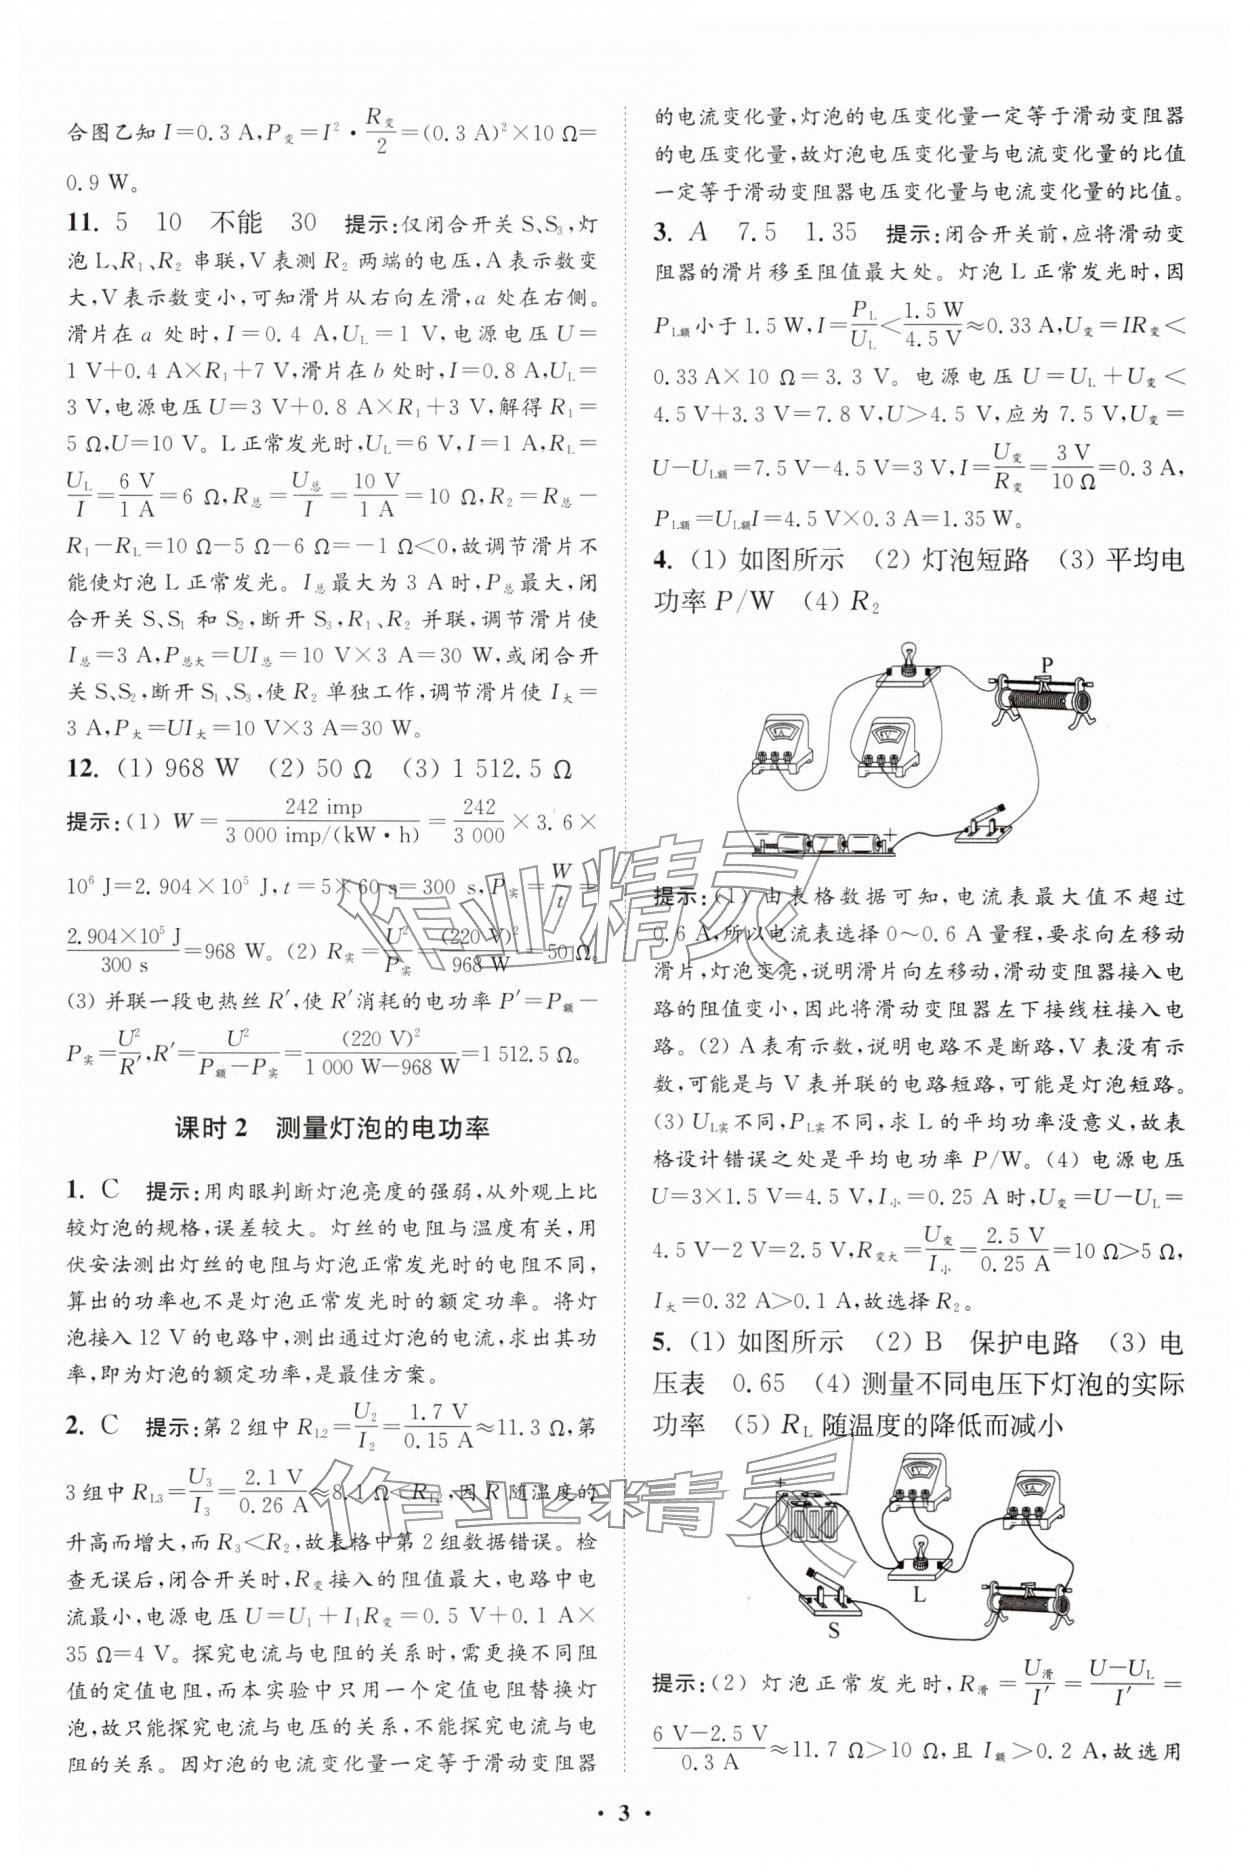 合图乙知 I=0.3 A,P变=I²·R变/2=(0.3 A)²×10 Ω=
0.9 W。
11. 5 10 不能 30 提示:仅闭合开关 S、S₃,灯
泡 L、R₁、R₂ 串联,V 表测 R₂ 两端的电压,A 表示数变
大,V 表示数变小,可知滑片从右向左滑,a 处在右侧。
滑片在 a 处时,I=0.4 A,U_L=1 V,电源电压 U=
1 V+0.4 A×R₁+7 V,滑片在 b 处时,I=0.8 A,U_L=
3 V,电源电压 U=3 V+0.8 A×R₁+3 V,解得 R₁=
5 Ω,U=10 V。L 正常发光时,U_L=6 V,I=1 A,R_L=
U_L/I=6 V/1 A=6 Ω,R总=U总/I=10 V/1 A=10 Ω,R₂=R总-
R₁-R_L=10 Ω-5 Ω-6 Ω=-1 Ω<0,故调节滑片不
能使灯泡 L 正常发光。I总最大为 3 A 时,P总最大,闭
合开关 S、S₁ 和 S₂,断开 S₃,R₁、R₂ 并联,调节滑片使
I总=3 A,P总大=UI总=10 V×3 A=30 W,或闭合开
关 S、S₂,断开 S₁、S₃,使 R₂ 单独工作,调节滑片使 I大=
3 A,P大=UI大=10 V×3 A=30 W。
12. (1) 968 W (2) 50 Ω (3) 1 512.5 Ω
提示:(1) W=242 imp/3 000 imp/(kW·h)=242/3 000×3.6×
10⁶ J=2.904×10⁵ J,t=5×60 s=300 s,P实=W/t=
2.904×10⁵ J/300 s=968 W。(2) R实=U²/P实=(220 V)²/968 W=50 Ω。
(3) 并联一段电热丝 R′,使 R′消耗的电功率 P′=P额-
P实=U²/R′,R′=U²/(P额-P实)=(220 V)²/(1 000 W-968 W)=1 512.5 Ω。
课时 2 测量灯泡的电功率
1. C 提示:用肉眼判断灯泡亮度的强弱,从外观上比
较灯泡的规格,误差较大。灯丝的电阻与温度有关,用
伏安法测出灯丝的电阻与灯泡正常发光时的电阻不同,
算出的功率也不是灯泡正常发光时的额定功率。将灯
泡接入 12 V 的电路中,测出通过灯泡的电流,求出其功
率,即为灯泡的额定功率,是最佳方案。
2. C 提示:第 2 组中 R_L2=U₂/I₂=1.7 V/0.15 A≈11.3 Ω,第
3 组中 R_L3=U₃/I₃=2.1 V/0.26 A≈8.1 Ω<R_L2,因 R 随温度的
升高而增大,而 R₃<R₂,故表格中第 2 组数据错误。检
查无误后,闭合开关时,R变接入的阻值最大,电路中电
流最小,电源电压 U=U₁+I₁R变=0.5 V+0.1 A×
35 Ω=4 V。探究电流与电阻的关系时,需更换不同阻
值的定值电阻,而本实验中只用一个定值电阻替换灯
泡,故只能探究电流与电压的关系,不能探究电流与电
阻的关系。因灯泡的电流变化量一定等于滑动变阻器
的电流变化量,灯泡的电压变化量一定等于滑动变阻器
的电压变化量,故灯泡电压变化量与电流变化量的比值
一定等于滑动变阻器电压变化量与电流变化量的比值。
3. A 7.5 1.35 提示:闭合开关前,应将滑动变
阻器的滑片移至阻值最大处。灯泡 L 正常发光时,因
P_L额小于 1.5 W,I=P_L/U_L<1.5 W/4.5 V≈0.33 A,U变=IR变<
0.33 A×10 Ω=3.3 V。电源电压 U=U_L+U变<
4.5 V+3.3 V=7.8 V,U>4.5 V,应为 7.5 V,U变=
U-U_L额=7.5 V-4.5 V=3 V,I=U变/R变=3 V/10 Ω=0.3 A,
P_L额=U_L额I=4.5 V×0.3 A=1.35 W。
4. (1) 如图所示 (2) 灯泡短路 (3) 平均电
功率 P/W (4) R₂
P
A
V
- +
提示:(1) 由表格数据可知,电流表最大值不超过
0.6 A,所以电流表选择 0~0.6 A 量程,要求向左移动
滑片,灯泡变亮,说明滑片向左移动,滑动变阻器接入电
路的阻值变小,因此将滑动变阻器左下接线柱接入电
路。(2) A 表有示数,说明电路不是断路,V 表没有示
数,可能是与 V 表并联的电路短路,可能是灯泡短路。
(3) U_L实不同,P_L实不同,求 L 的平均功率没意义,故表
格设计错误之处是平均电功率 P/W。(4) 电源电压
U=3×1.5 V=4.5 V,I小=0.25 A 时,U变=U-U_L=
4.5 V-2 V=2.5 V,R变大=U变/I小=2.5 V/0.25 A=10 Ω>5 Ω,
I大=0.32 A>0.1 A,故选择 R₂。
5. (1) 如图所示 (2) B 保护电路 (3) 电
压表 0.65 (4) 测量不同电压下灯泡的实际
功率 (5) R_L 随温度的降低而减小
+ -
V
A
L
S
提示:(2) 灯泡正常发光时,R滑=U滑/I′=(U-U_L)/I′=
(6 V-2.5 V)/0.3 A≈11.7 Ω>10 Ω,且 I额>0.2 A,故选用
· 3 ·
作业精灵
作业精灵